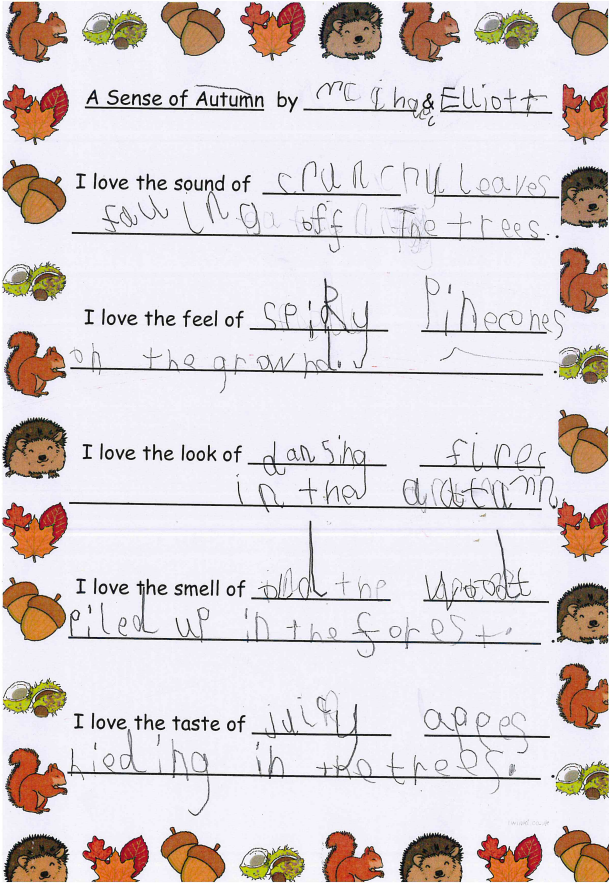 A Sense of Autumn by & Elliott
I love the sound of crunchy leaves
falling off the trees.
I love the feel of spiky Pinecones
on the ground.
I love the look of dansing fires
in the
I love the smell of old the
piled up in the forest.
I love the taste of juicy appes
hieding in the trees.